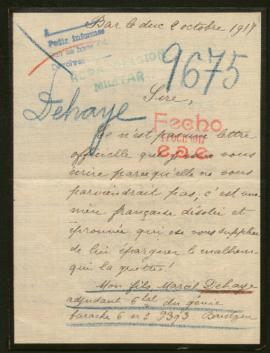 Bar le duc 2 octobre 1917
Pedir informes
9675
MILITAR
Dehaye
Sire,
Fecho
ce n'est pas une lettre
officielle que vous
écrire parce qu'elle ne vous
parviendrait pas, c'est une
mère française désolée et
éprouvée qui ose vous supplier
de lui épargner le malheur
qui la guette!
Mon fils Marcel Dehaye
adjudant 6 bat du génie
baraque 6 n° 2393